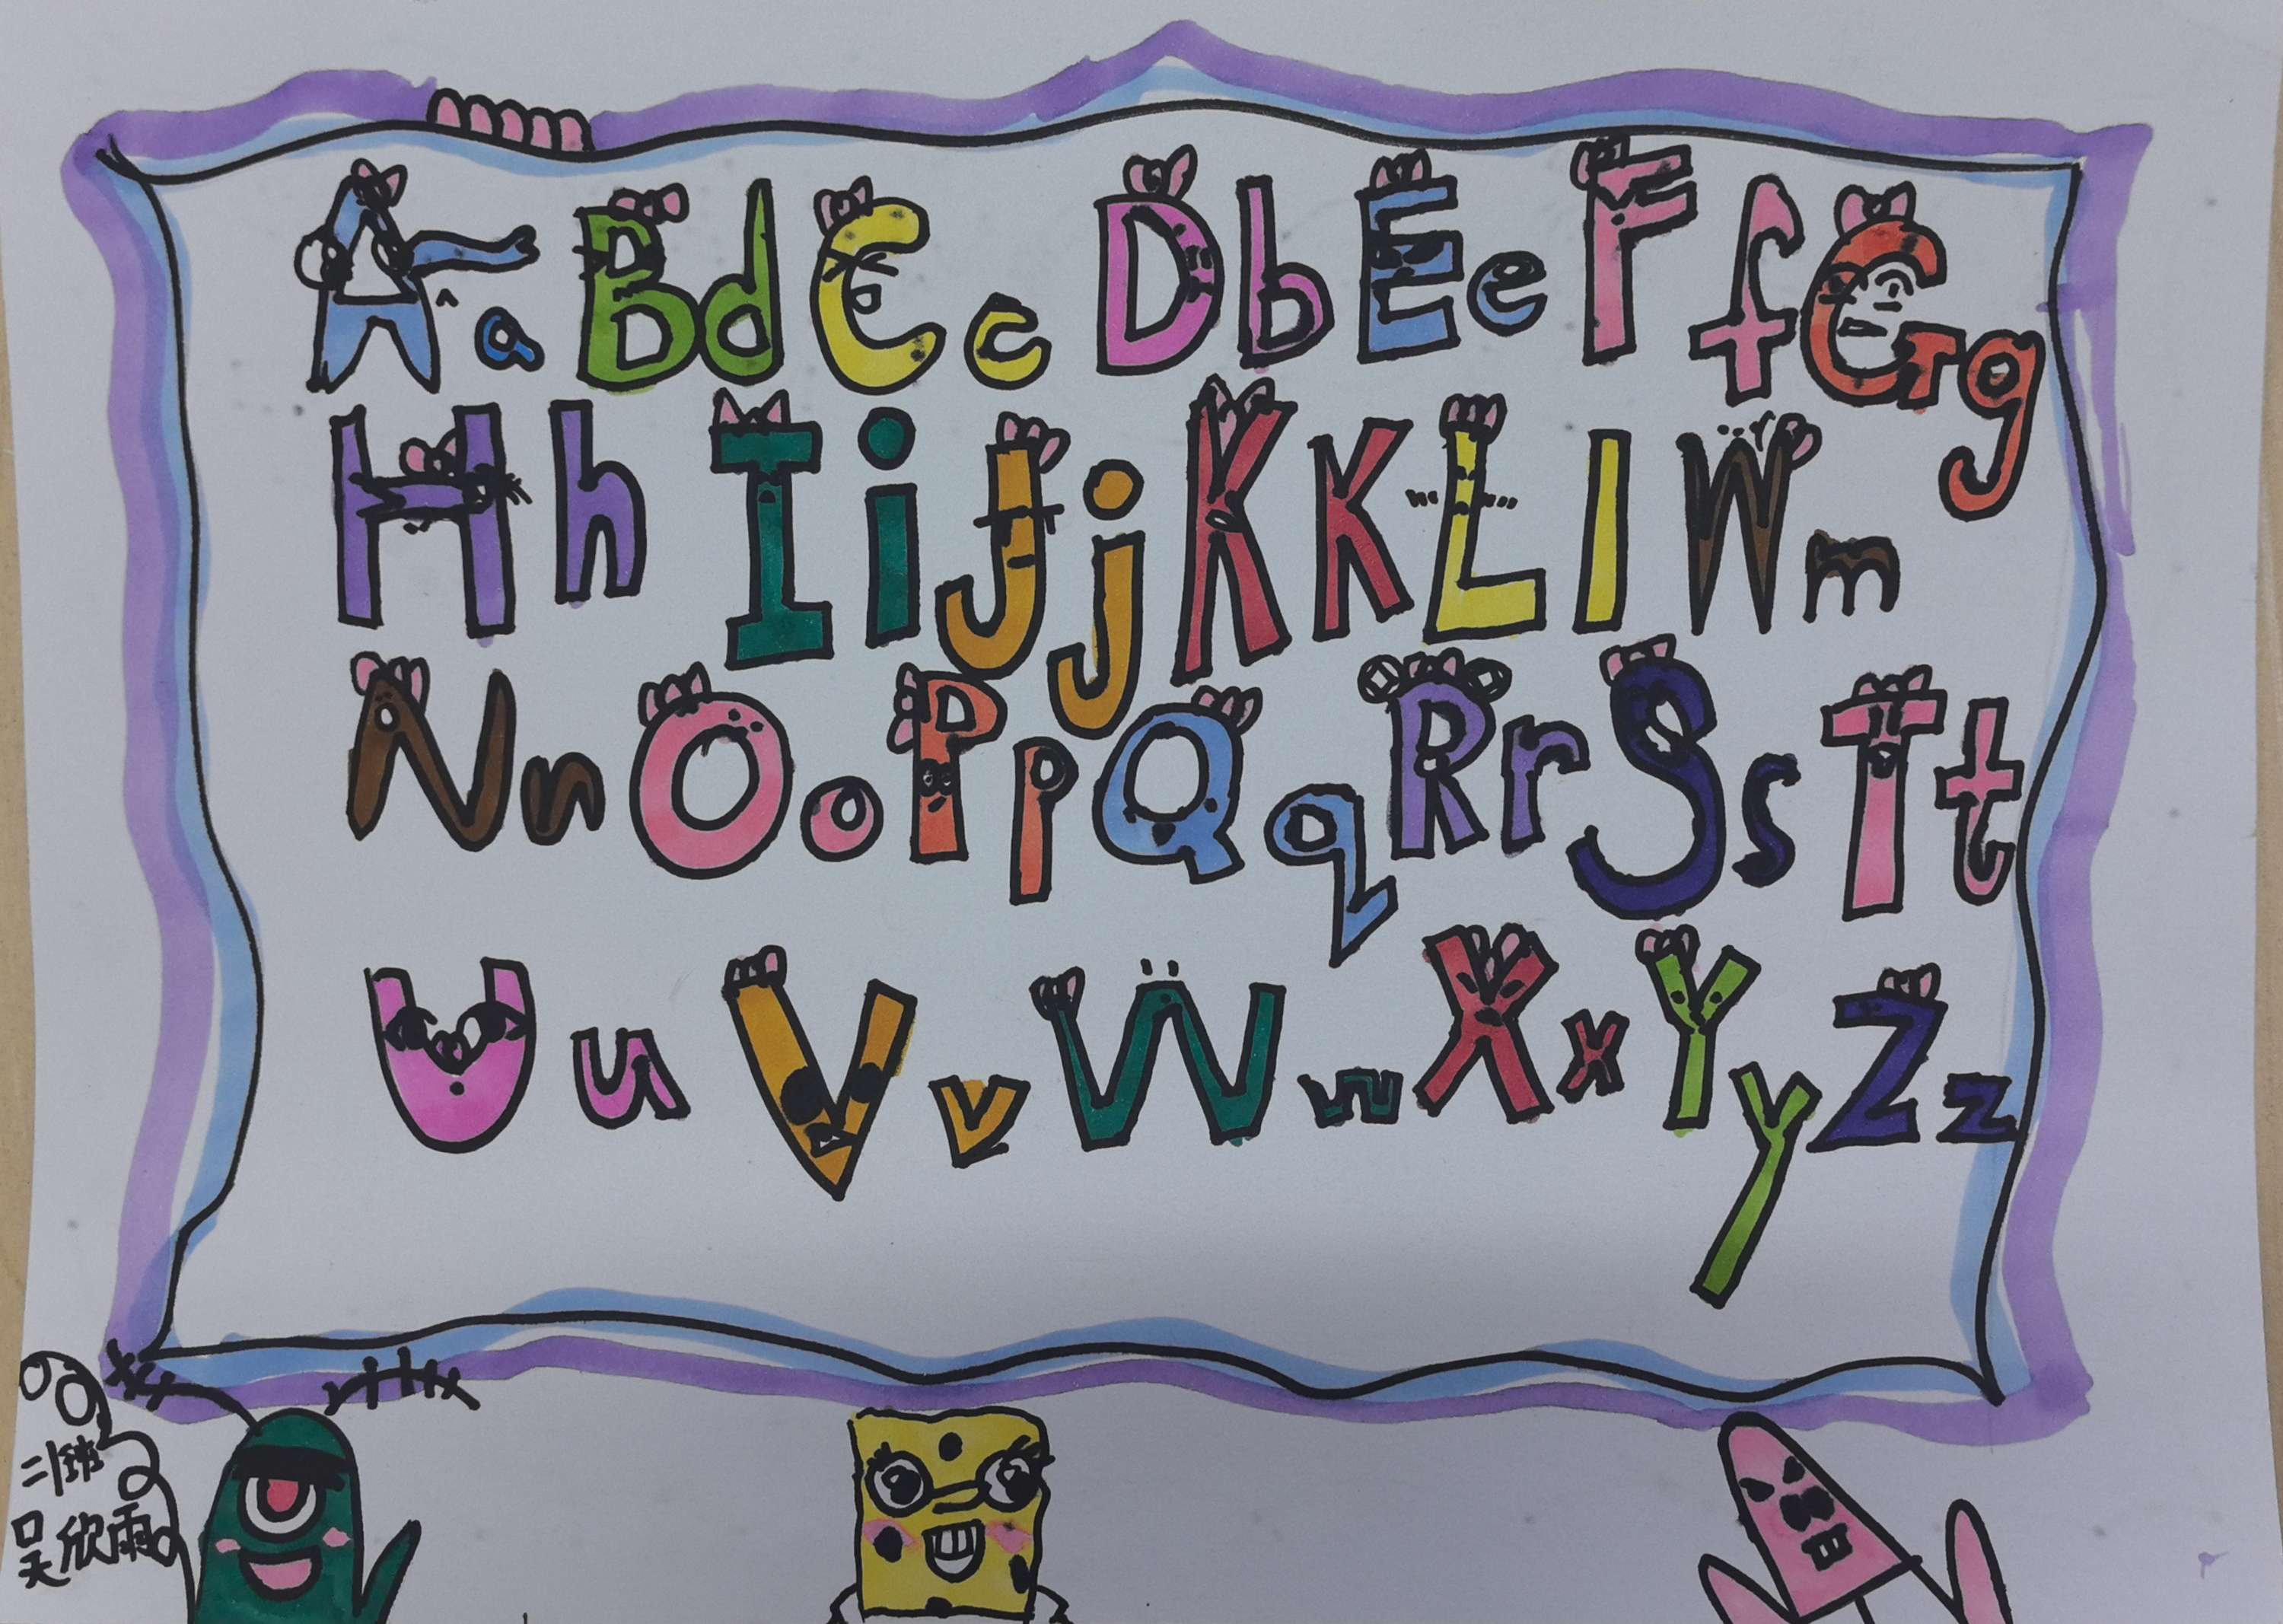 Aa Bd Cc Db Ee Ff Gg
Hh Ii Jj KK Ll Wm
Nn Oo Pp Qq Rr Ss Tt
Uu Vv Ww Xx Yy Zz
二1班
吴欣雨